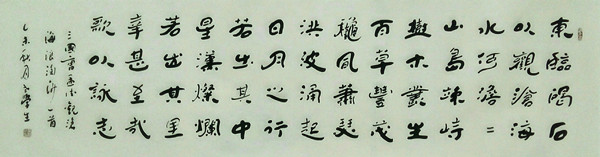 東臨碣石
以觀滄海
水何澹〻
山島竦峙
樹木叢生
百草豐茂
龝風蕭瑟
洪波涌起
日月之行
若出其中
星漢燦爛
若出其里
幸甚至哉
歌以詠志
三國曹孟德觀滄
海浪淘沙一首
乙未秋月學生